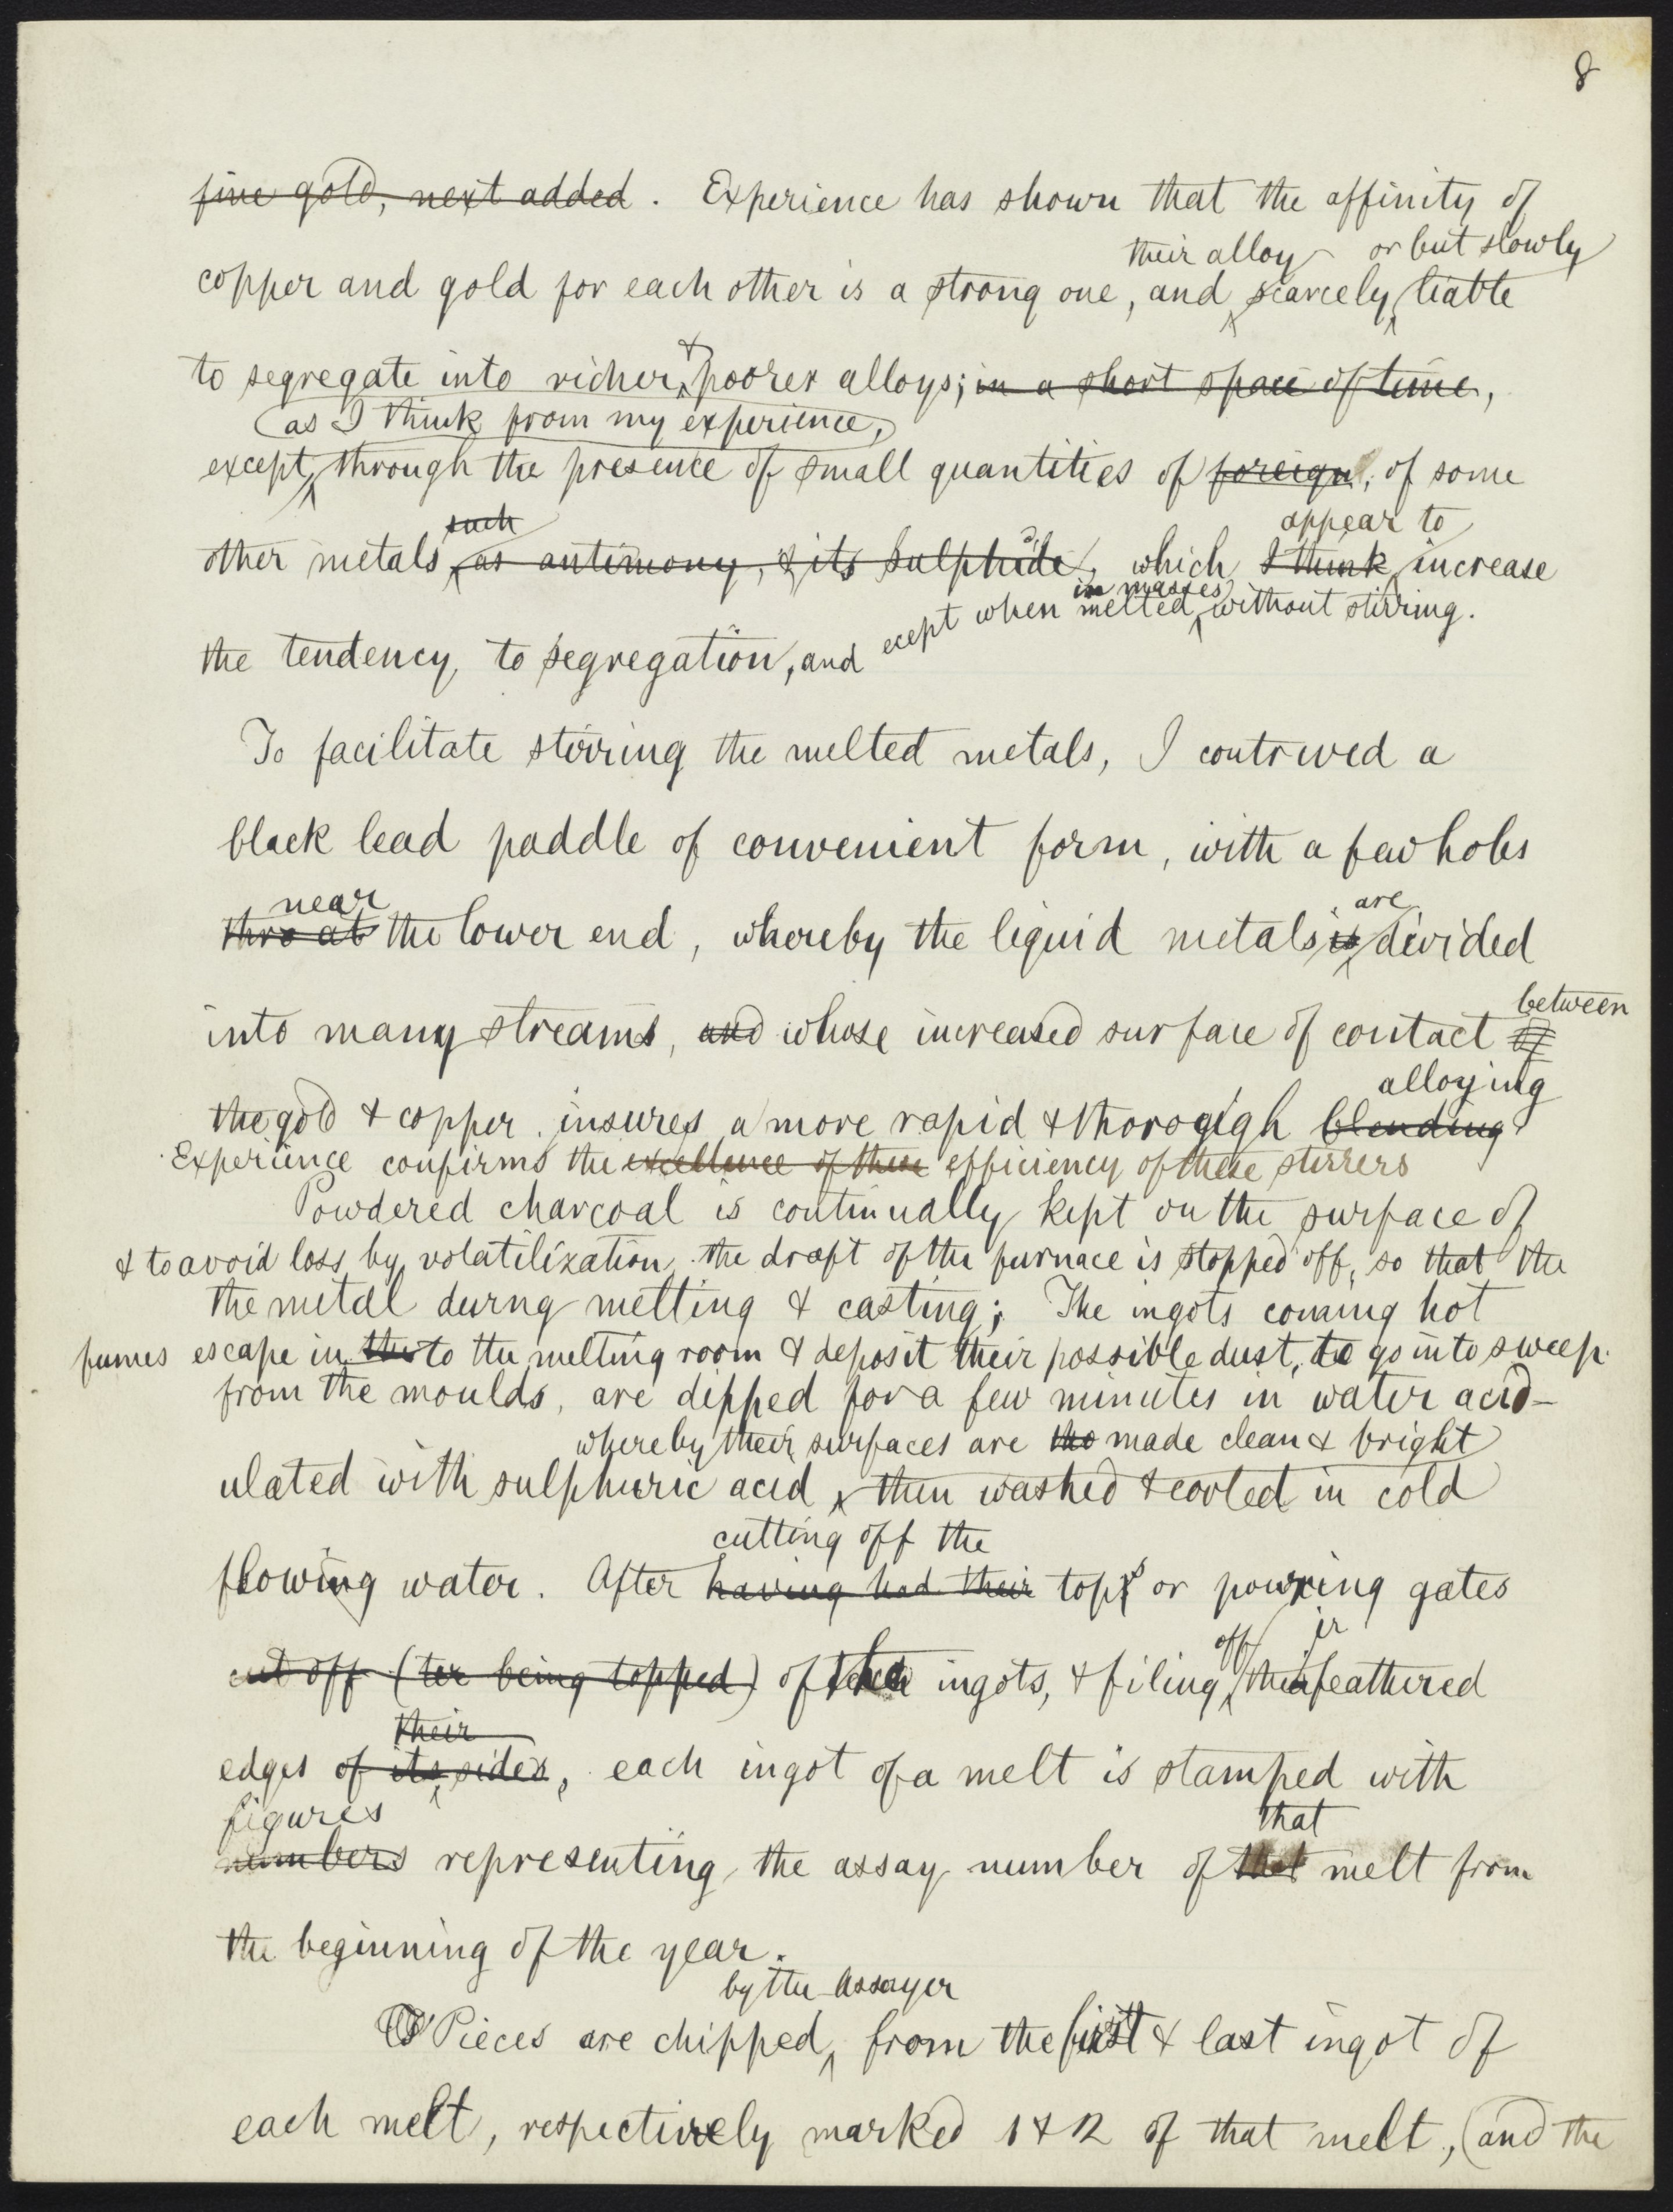 8
fine gold, next added. Experience has shown that the affinity of
their alloy or but slowly
copper and gold for each other is a strong one, and scarcely liable
&
to segregate into richer poorer alloys; in a short space of time,
(as I think from my experience,)
except, through the presence of small quantities of foreign, of some
such appear to
other metals, as antimony, & its sulphide, which I think increase
in masses
ecept when melted, without stirring.
the tendency to segregation, and
To facilitate stirring the melted metals, I contrived a
black lead paddle of convenient form, with a few holes
near are
thro at the lower end, whereby the liquid metals is divided
between
into many streams, and whose increased surface of contact of
alloying
the gold & copper insures a more rapid & thorough blending
Experience confirms the excellence of these efficiency of these stirrers
Powdered charcoal is continually kept on the surface of
& to avoid loss by volatilization, the draft of the furnace is stopped off, so that the
the metal durng melting & casting; The ingots coming hot
fumes escape in to the melting room & deposit their possible dust, to go into sweep.
from the moulds, are dipped for a few minutes in water acid-
whereby their surfaces are made clean & bright
ulated with sulphuric acid, then washed & cooled in cold
cutting off the
flowing water. After having had their tops or pouring gates
off ir
cut off (ter being topped) of the ingots, & filing their feathered
their
edges of its sides, each ingot of a melt is stamped with
figures that
numbers representing the assay number of that melt from
the beginning of the year.
by the Assayer
Pieces are chipped, from the first & last ingot of
each melt, respectively marked 1 & 12 of that melt, (and the